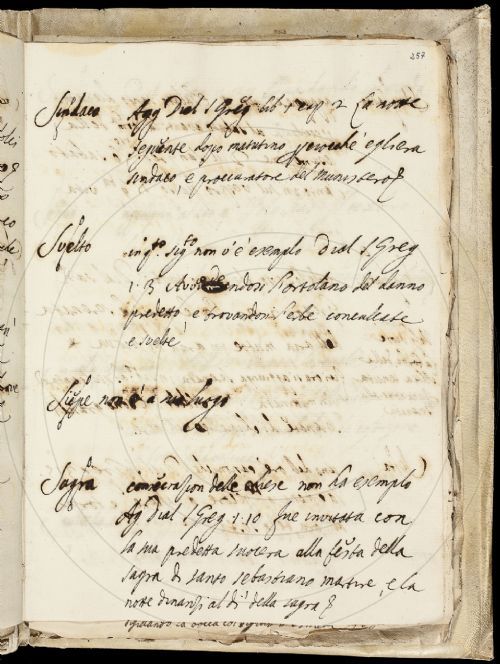 257
Sindaco Agg Dial S Greg lib 1 cap 2 La notte
seguente dopo matutino perochè egli era
sindaco e proccuratore del Munistero
Svelto in qto sigto non v'è esemplo Dial S Greg
1. 3 Avvedendosi l'ortolano del danno
predetto e trovandosi l'erbe conculcate
e svelte
Siepe non è a suo luogo
Sagra consecrazion delle chiese non ha esemplo
Ag Dial S Greg 1. 10 fue invitata con
la sua predetta suocera alla festa della
sagra di santo Sebastiano martire, e la
notte dinanzi al dì della sagra